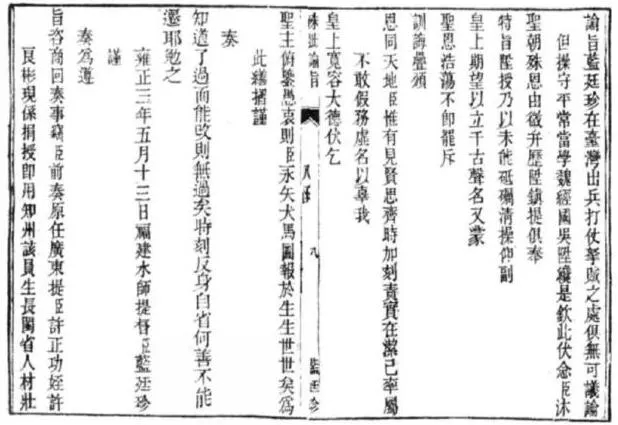 諭旨藍廷珍在臺灣出兵打仗拏賊之處俱無可議論
但操守平常當學魏經國吳陞纔是欽此伏念臣沐
聖朝殊恩由微升歷陞鎮提俱奉
特旨陞授乃以未能砥礪清操仰副
皇上期望以立千古聲名又蒙
聖恩浩蕩不即罷斥
訓誨疊頒
恩同天地臣惟有見賢思齊時加刻責實在潔己率屬
不敢假務虛名以辜我
皇上寬容大德伏乞
硃批諭旨 九 藍廷珍
聖主俯鑒愚衷則臣永矢犬馬圖報於生生世世矣為
此繕摺謹
奏
知道了過而能改則無過矣時刻反身自省何善不能
遷耶勉之
雍正三年五月十三日福建水師提督臣藍廷珍
謹
奏為遵
旨咨商回奏事竊臣前奏原任廣東提臣許正功姪許
良彬現係捐授即用知州該員生長閩省人材壯